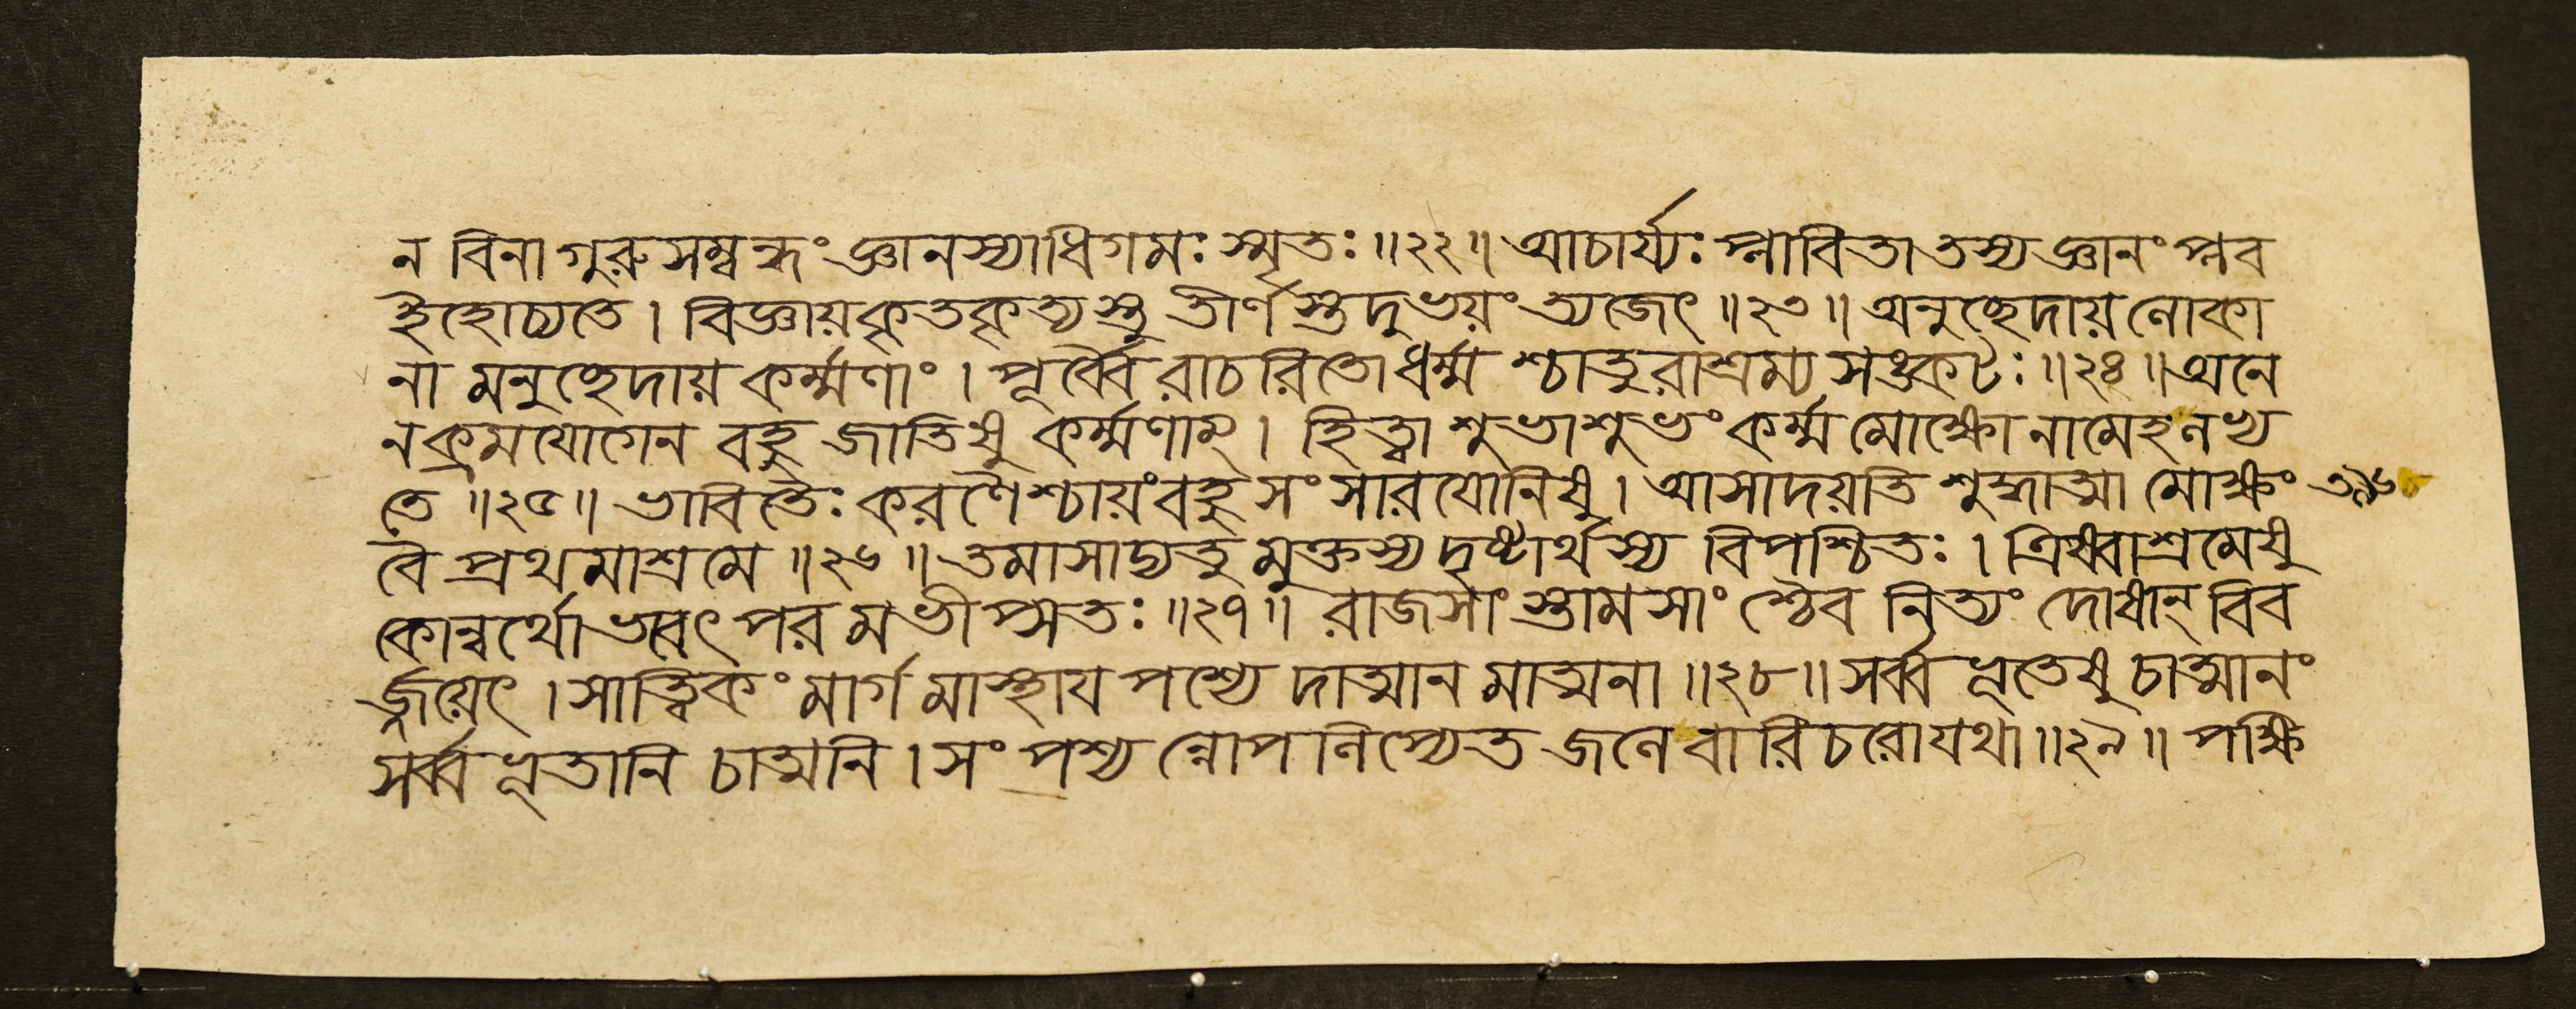 ন বিনা গুরুসম্বন্ধং জ্ঞানস্যাধিগমঃ স্মৃতঃ ॥২২॥ আচার্য্যঃ প্লাবিতা তস্য জ্ঞানং প্লব
ইহোচ্যতে । বিজ্ঞায় কৃতকৃত্যস্তু তীর্ণস্তদুভয়ং ত্যজেৎ ॥২৩॥ অনুচ্ছেদায় লোকা
নামনুচ্ছেদায় কর্ম্মণাং । পূর্ব্বৈরাচরিতো ধর্ম্মশ্চাতুরাশ্রম্য সঙ্কটঃ ॥২৪॥ অনে
ন ক্রমযোগেন বহু জাতিষু কর্ম্মণাম্ । হিত্বা শুভাশুভং কর্ম্ম মোক্ষো নামেহ লভ্য
তে ॥২৫॥ ভাবিতৈঃ করণৈশ্চায়ং বহু সংসারযোনিষু । আসাদয়তি শুদ্ধাত্মা মোক্ষং
বৈ প্রথমাশ্রমে ॥২৬॥ তমাসাদ্য তু মুক্তস্য দৃষ্টার্থস্য বিপশ্চিতঃ । ত্রিষ্বাশ্রমেষু
কোন্বর্থো ভবেৎ পরমভীপ্সতঃ ॥২৭॥ রাজসাংস্তামসাংশ্চৈব নিত্যং দোষান্ বিব
র্জ্জয়েৎ । সাত্ত্বিকং মার্গমাস্থায় পশ্যেদাত্মানমাত্মনা ॥২৮॥ সর্ব্বভূতেষু চাত্মানং
সর্ব্বভূতানি চাত্মনি । সংপশ্যন্নোপলিপ্যেত জলে বারিচরো যথা ॥২৯॥ পক্ষি